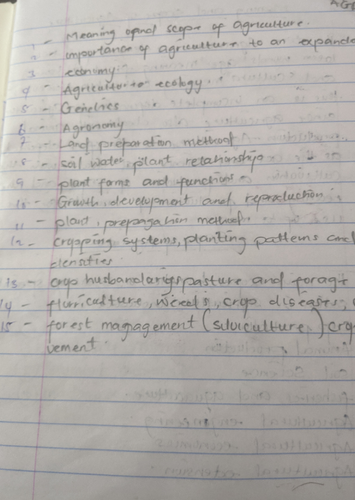 AGR
1 - Meaning and scope of agriculture.
2 - importance of agriculture to an expande
3 - economy.
4 - Agricultural ecology.
5 - Genetics
6 - Agronomy
7 - Land preparation method
8 - soil water plant relationship
9 - plant forms and functions.
10 - Growth, development and reproduction.
11 - plant, propagation method.
12 - cropping systems, planting patterns and
densities
13 - crop husbandary, pasture and forage
14 - floriculture, weeds, crop diseases,
15 - forest management (silviculture) cro
vement.